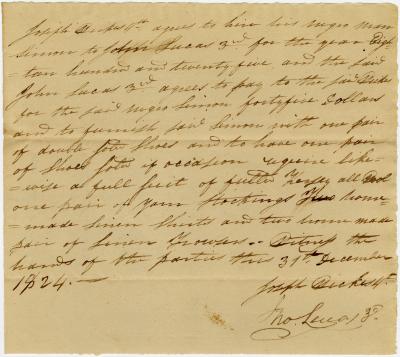 Joseph Dickes 4th agrees to hire his negro man
Simon to John Lucas 3rd for the year Eigh
=teen hundred and twentyfive, and the said
John Lucas 3rd agrees to pay to the said Dickes
for the said negro Simon fortyfive Dollars
and to furnish said Simon with one pair
of double sole Shoes and to have one pair
of Shoes soled if occasion require like=
=wise a full suit of fulled Kersey all wool
one pair of yarn Stockings Two home
=made linen Shirts and two home made
pair of linen Trowsers.. Witness the
hands of the parties this 31th December
1824.—
Joseph Dickes 4th
Jno Lucas 3rd